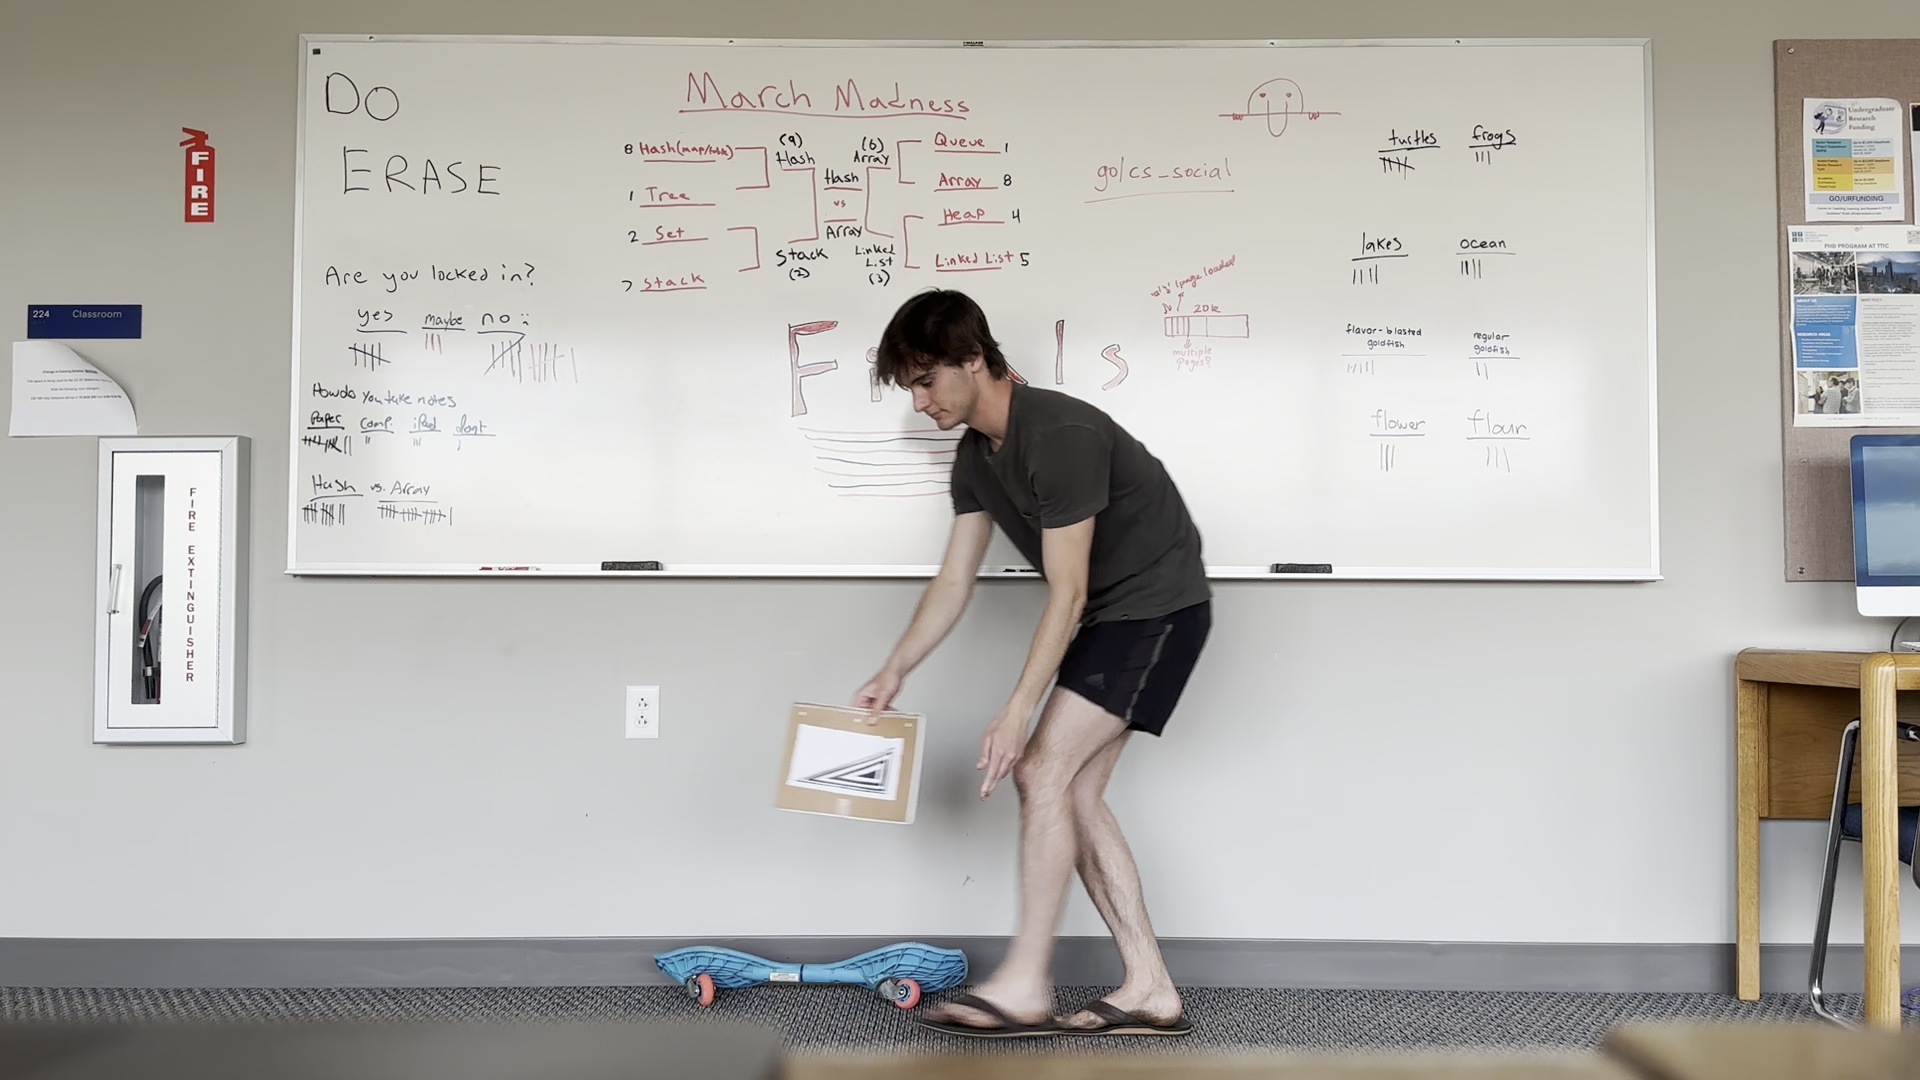 DO
ERASE
Are you locked in?
yes
maybe
no :
How do you take notes
Paper
comp.
iPad
dont
Hash vs. Array
March Madness
8 Hash(map/table)
1 Tree
2 Set
7 Stack
(9)
Hash
Stack
(2)
Hash
vs
Array
(6)
Array
Linked
List
(3)
Queue 1
Array 8
Heap 4
Linked List 5
go/cs_social
20k
multiple
pages?
turtles
frogs
lakes
ocean
flavor-blasted
goldfish
regular
goldfish
flower
flour
FIRE
224 Classroom
FIRE EXTINGUISHER
Undergraduate
Research
Funding
GO/URFUNDING
PHD PROGRAM AT TTIC